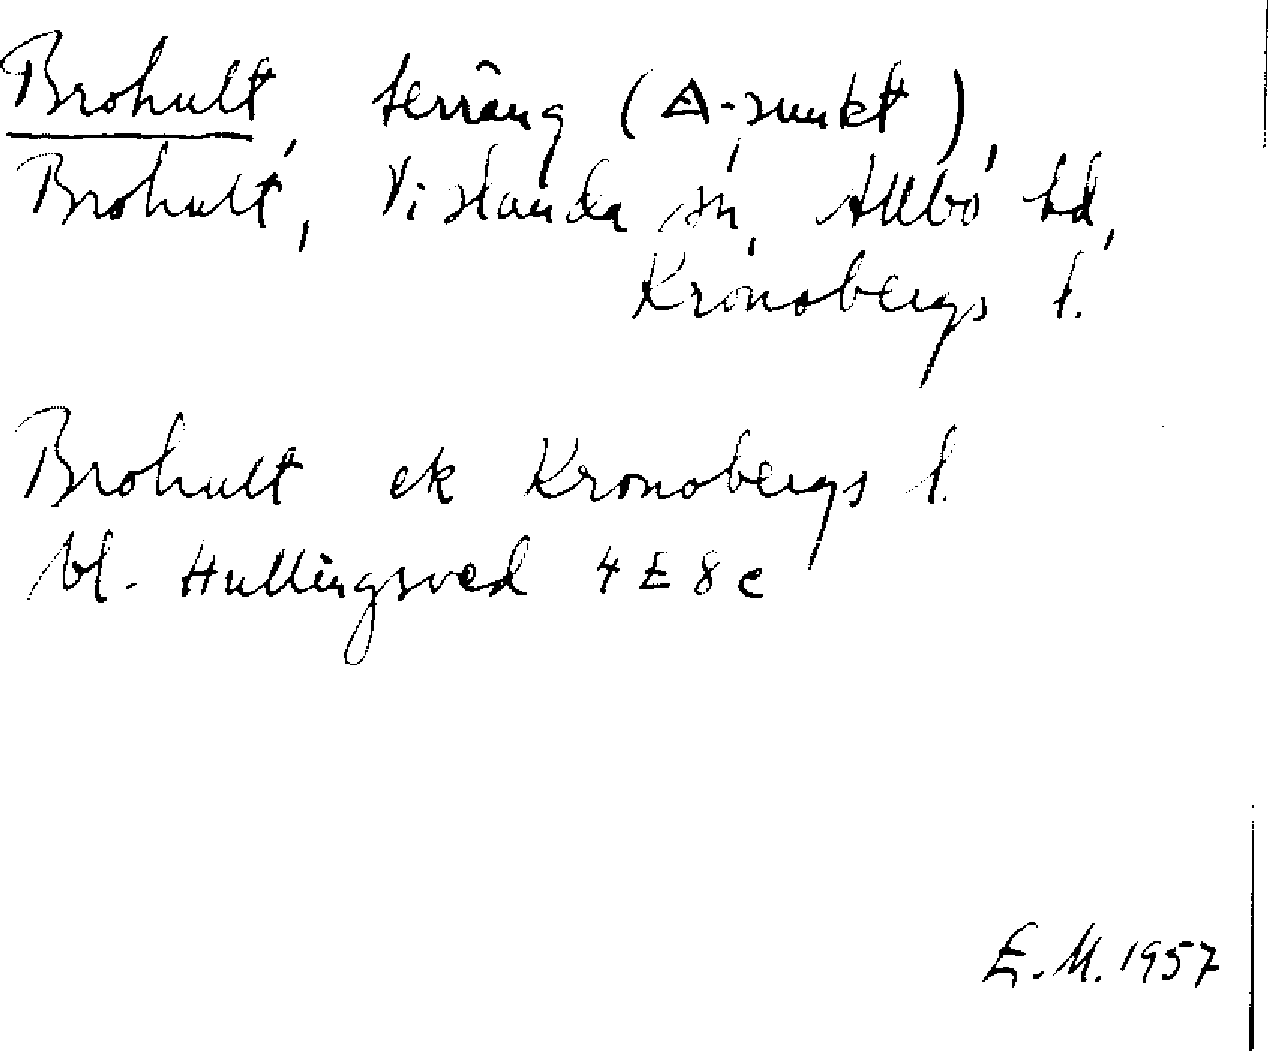 Brohult, terräng (△-punkt),
Brohult, Vislanda sn, Allbo hd,
Kronobergs l.
Brohult ek Kronobergs l.
bl. Hullingsved 4 E 8 c
E. M. 1957